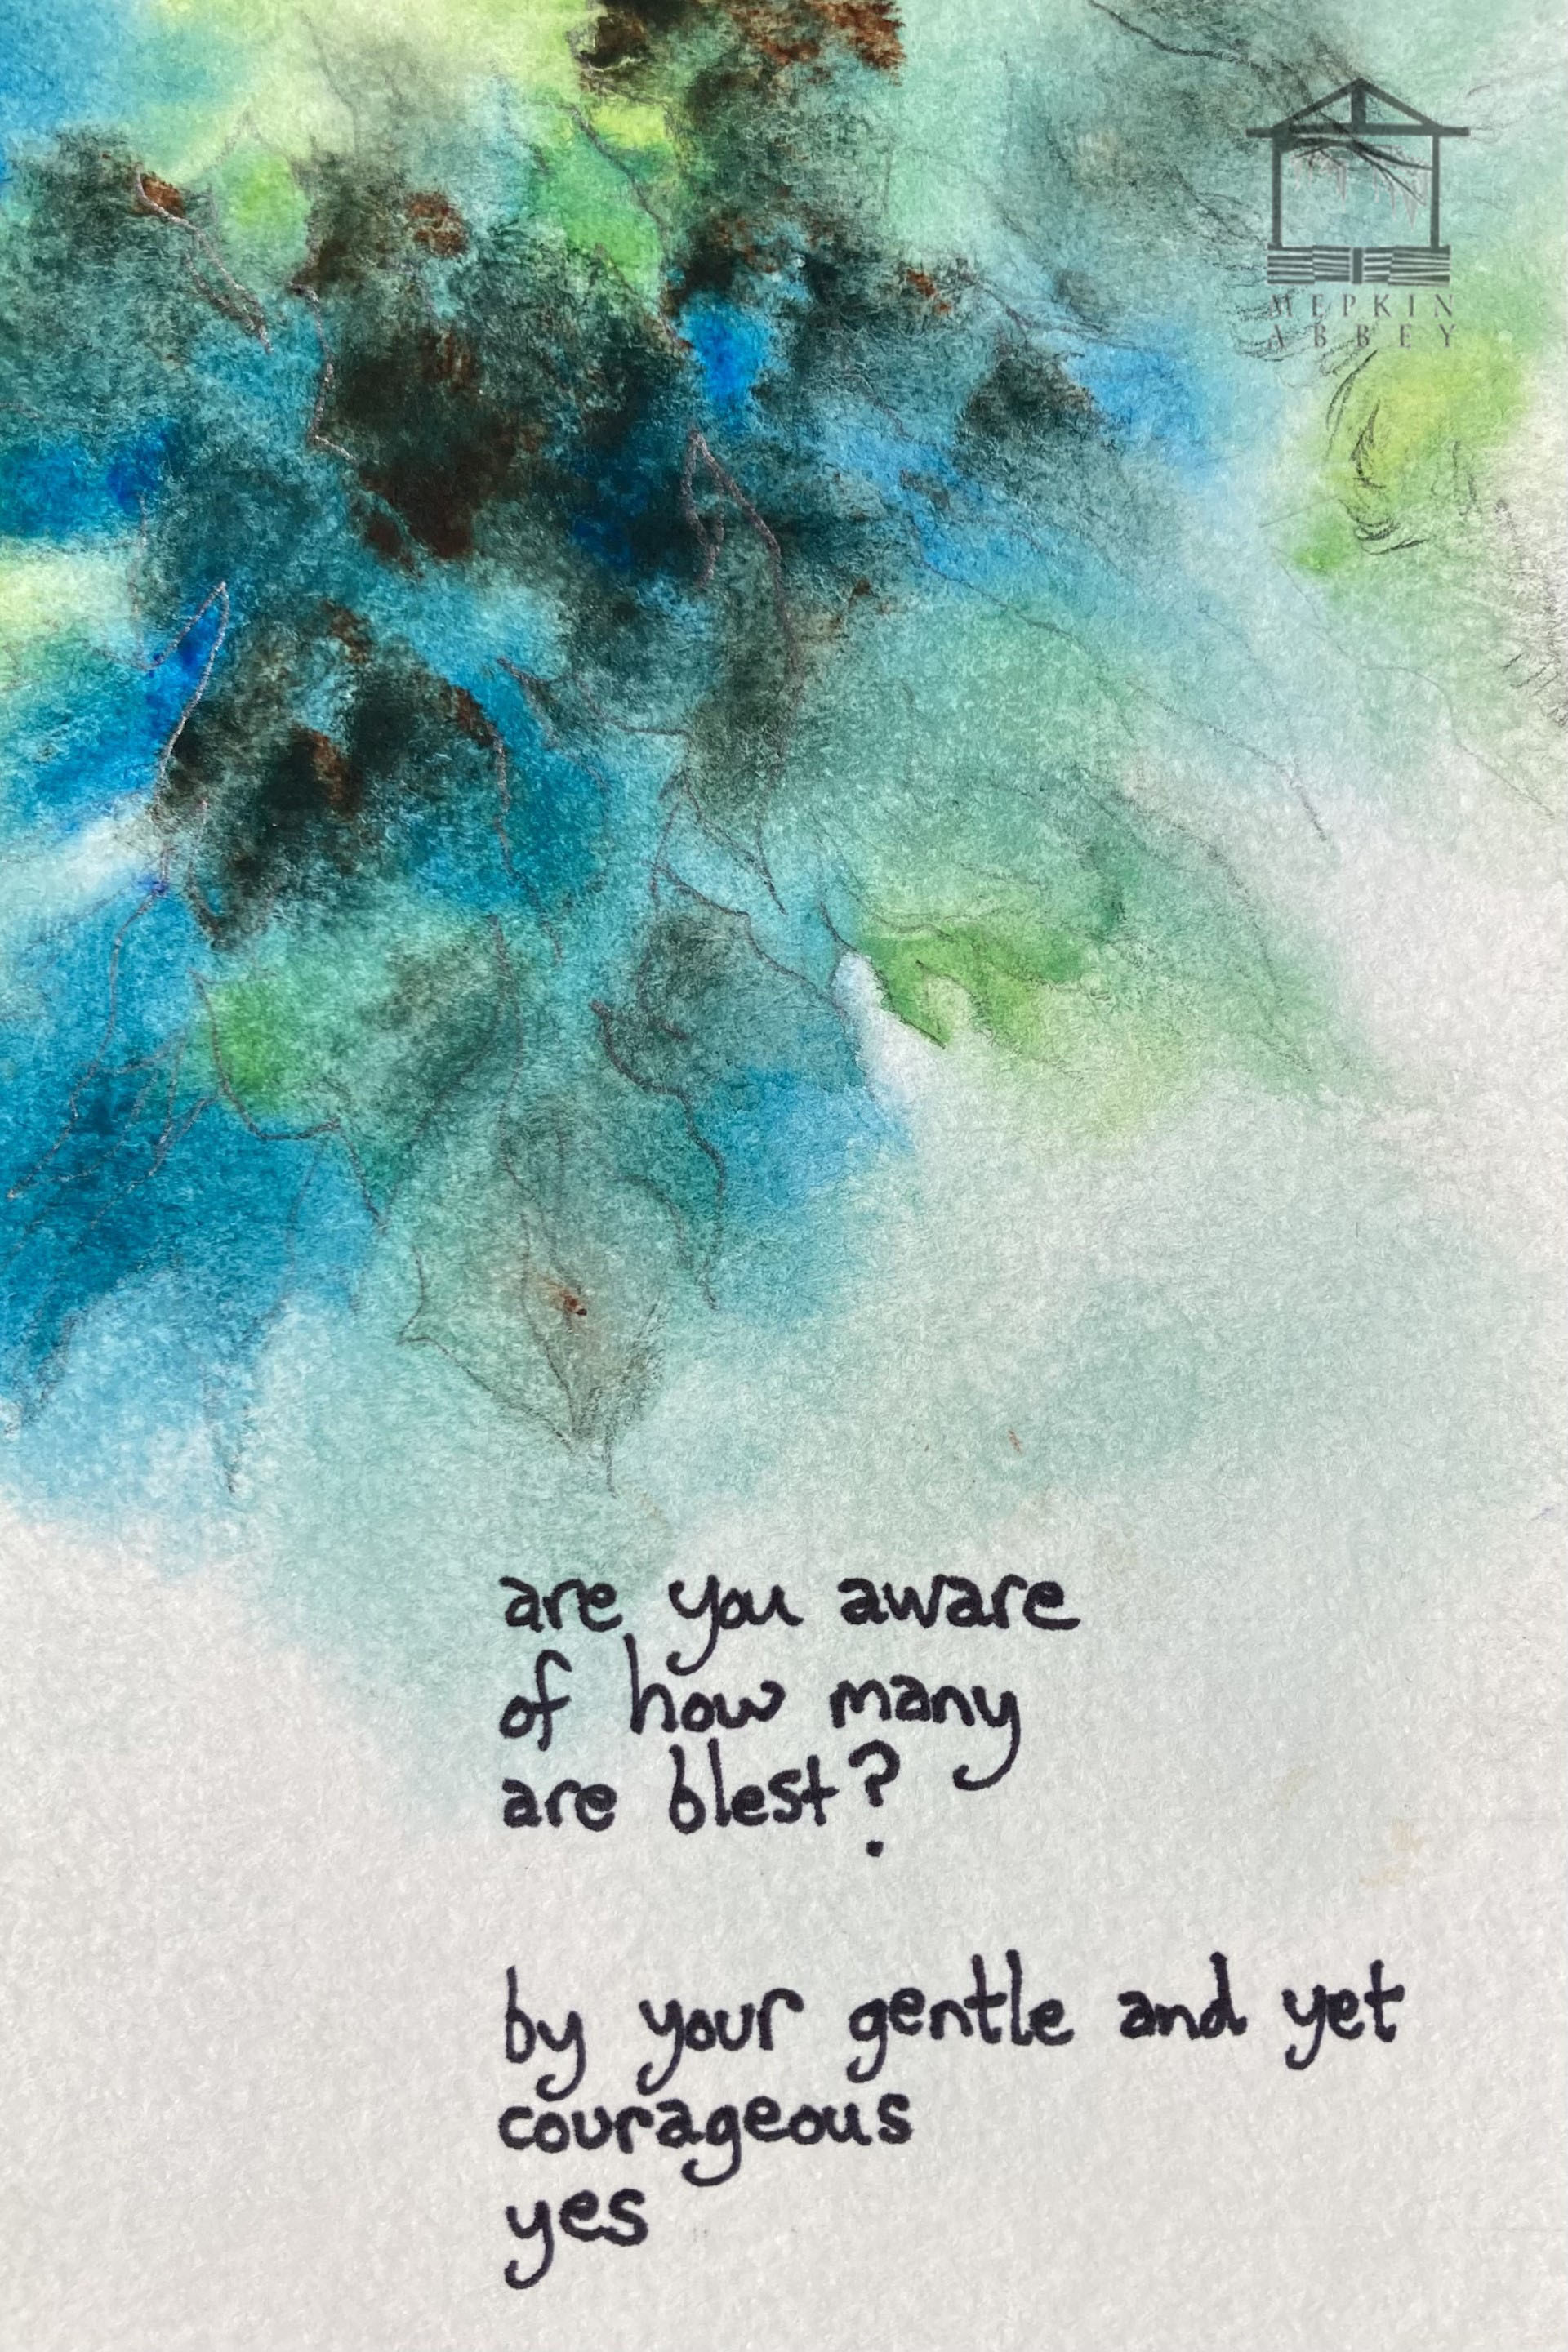 MEPKIN
ABBEY
are you aware
of how many
are blest?
by your gentle and yet
courageous
yes